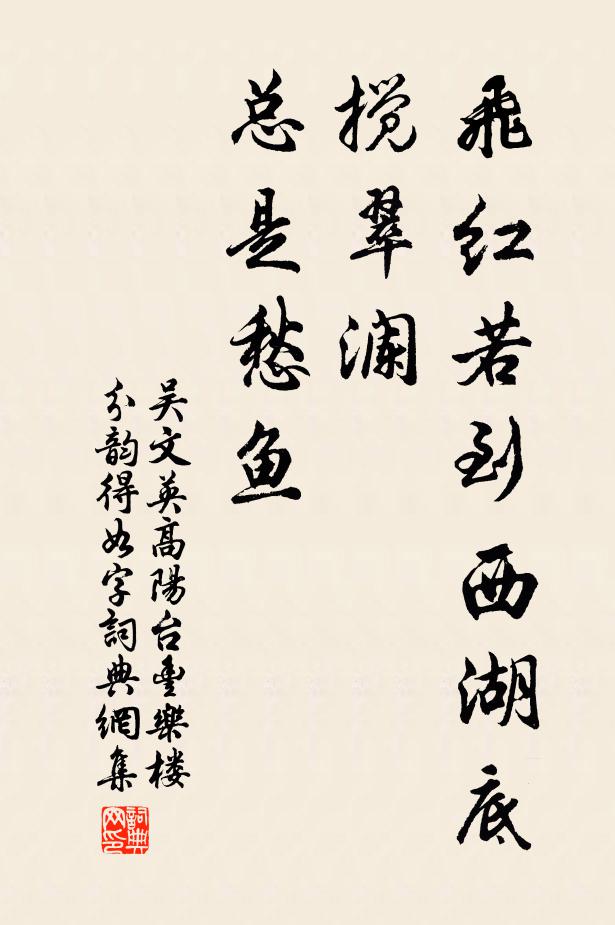 飛红若到西湖底
搅翠澜
总是愁鱼
吴文英高陽台豊樂楼
分韵得如字詞典網集
詞典网印